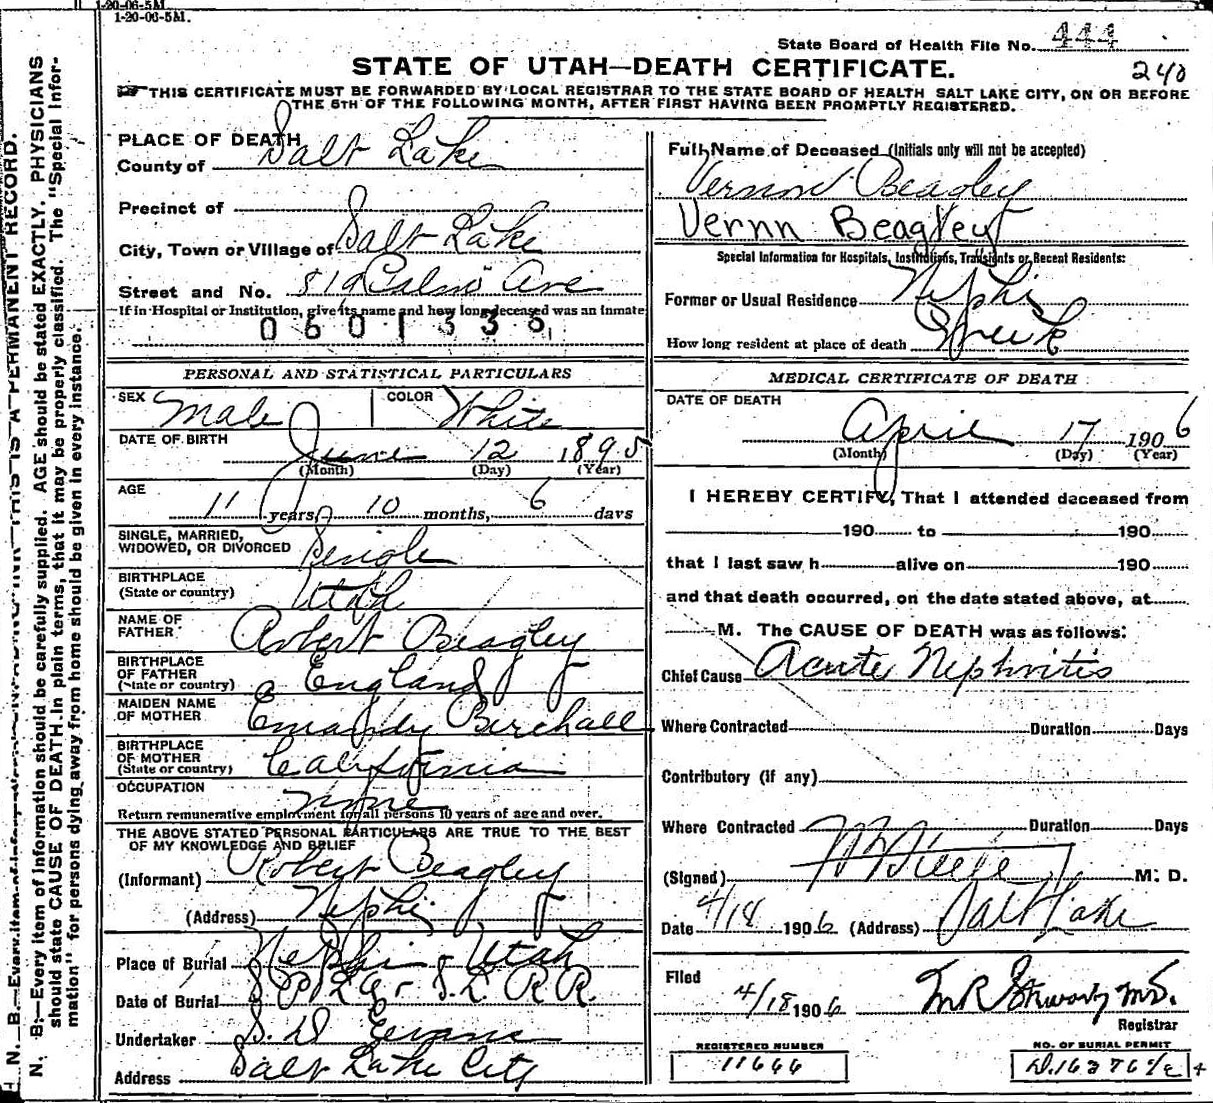 1-20-06-5M.
1-20-06-5M.
State Board of Health File No. 444
240
STATE OF UTAH—DEATH CERTIFICATE.
THIS CERTIFICATE MUST BE FORWARDED BY LOCAL REGISTRAR TO THE STATE BOARD OF HEALTH SALT LAKE CITY, ON OR BEFORE
THE 5TH OF THE FOLLOWING MONTH, AFTER FIRST HAVING BEEN PROMPTLY REGISTERED.
PLACE OF DEATH
County of Salt Lake
Precinct of
City, Town or Village of Salt Lake
Street and No. 819 Ave
If in Hospital or Institution, give its name and how long deceased was an inmate
0601336
PERSONAL AND STATISTICAL PARTICULARS
SEX Male COLOR White
DATE OF BIRTH
June 12 1895
(Month) (Day) (Year)
AGE
11 years, 10 months, 6 days
SINGLE, MARRIED,
WIDOWED, OR DIVORCED Single
BIRTHPLACE
(State or country) Utah
NAME OF
FATHER Robert Beagley
BIRTHPLACE
OF FATHER
(State or country) England
MAIDEN NAME
OF MOTHER Birchall
BIRTHPLACE
OF MOTHER
(State or country) California
OCCUPATION
None
Return remunerative employment for all persons 10 years of age and over.
THE ABOVE STATED PERSONAL PARTICULARS ARE TRUE TO THE BEST
OF MY KNOWLEDGE AND BELIEF
(Informant) Robert Beagley
(Address) Nephi
Place of Burial Nephi - Utah
Date of Burial S.L. R.R.
Undertaker S. D. Evans
Address Salt Lake City
Full Name of Deceased (Initials only will not be accepted)
Vernon Beagley
Vernn Beagley
Special Information for Hospitals, Institutions, Transients or Recent Residents:
Former or Usual Residence Nephi
How long resident at place of death Week
MEDICAL CERTIFICATE OF DEATH
DATE OF DEATH
April 17 1906
(Month) (Day) (Year)
I HEREBY CERTIFY, That I attended deceased from
190 to 190
that I last saw h alive on 190
and that death occurred, on the date stated above, at
M. The CAUSE OF DEATH was as follows:
Chief Cause Acute Nephritis
Where Contracted Duration Days
Contributory (if any)
Where Contracted Duration Days
(Signed) M. D.
Date 4/18 1906 (Address) Salt Lake
Filed
4/18 1906 M.D.
Registrar
REGISTERED NUMBER
11666
NO. OF BURIAL PERMIT
N. B.—Every item of information should be carefully supplied. AGE should be stated EXACTLY. PHYSICIANS
should state CAUSE OF DEATH in plain terms, that it may be properly classified. The "Special Infor-
mation" for persons dying away from home should be given in every instance.